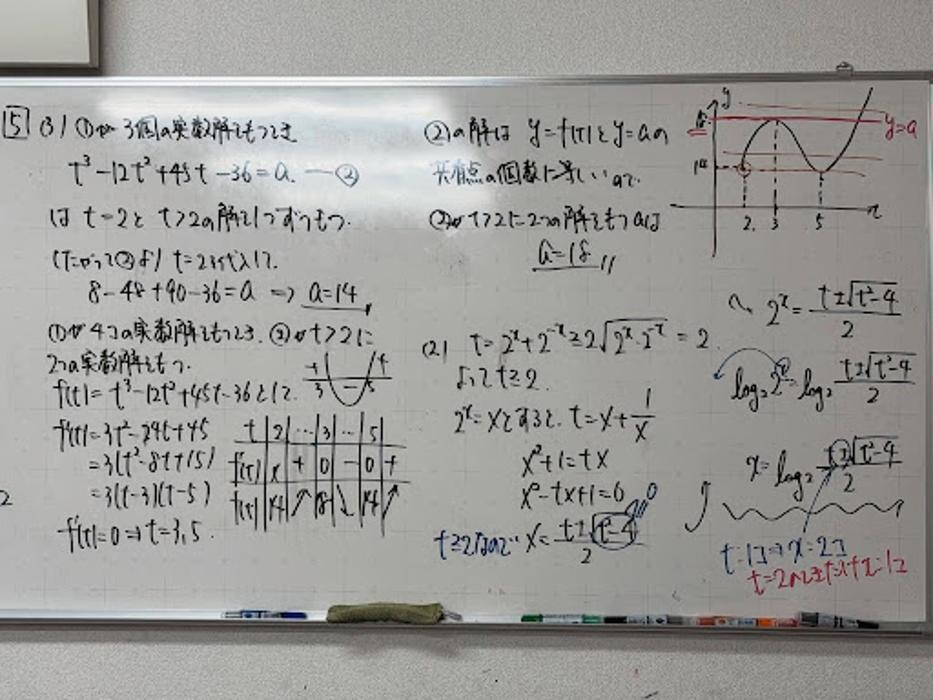 5 (3) ①が3個の実数解をもつとき
t³-12t²+45t-36=a. ―②
は t=2と t>2の解を1つずつもつ.
したがって②より t=2を代入して.
8-48+90-36=a ⇒ a=14
①が4つの実数解をもつとき. ②が t>2に
2つの実数解をもつ
f(t)=t³-12t²+45t-36として.
+ 3 - 5 +
f'(t)=3t²-24t+45
=3(t²-8t+15)
=3(t-3)(t-5)
f'(t)=0⇒t=3,5.
t 2 … 3 … 5
f'(t) × + 0 - 0 +
f(t) 14 ↗ 18 ↘ 14 ↗
②の解は y=f(t)とy=aの
共有点の個数に等しいので.
②が t>2に2つの解をもつaは
a=18 //
y
18
14
y=a
2 3 5
(2) t=2ˣ+2⁻ˣ≧2√2ˣ・2⁻ˣ=2.
よってt≧2.
2ˣ=Xとすると. t=X+1/X
X²+1=tX
X²-tX+1=0
t≧2なので X=(t±√t²-4)/2
≧0
2ˣ=(t±√t²-4)/2
log₂2ˣ=log₂(t±√t²-4)/2
x=log₂(t±√t²-4)/2
t=1コ⇒x=2コ